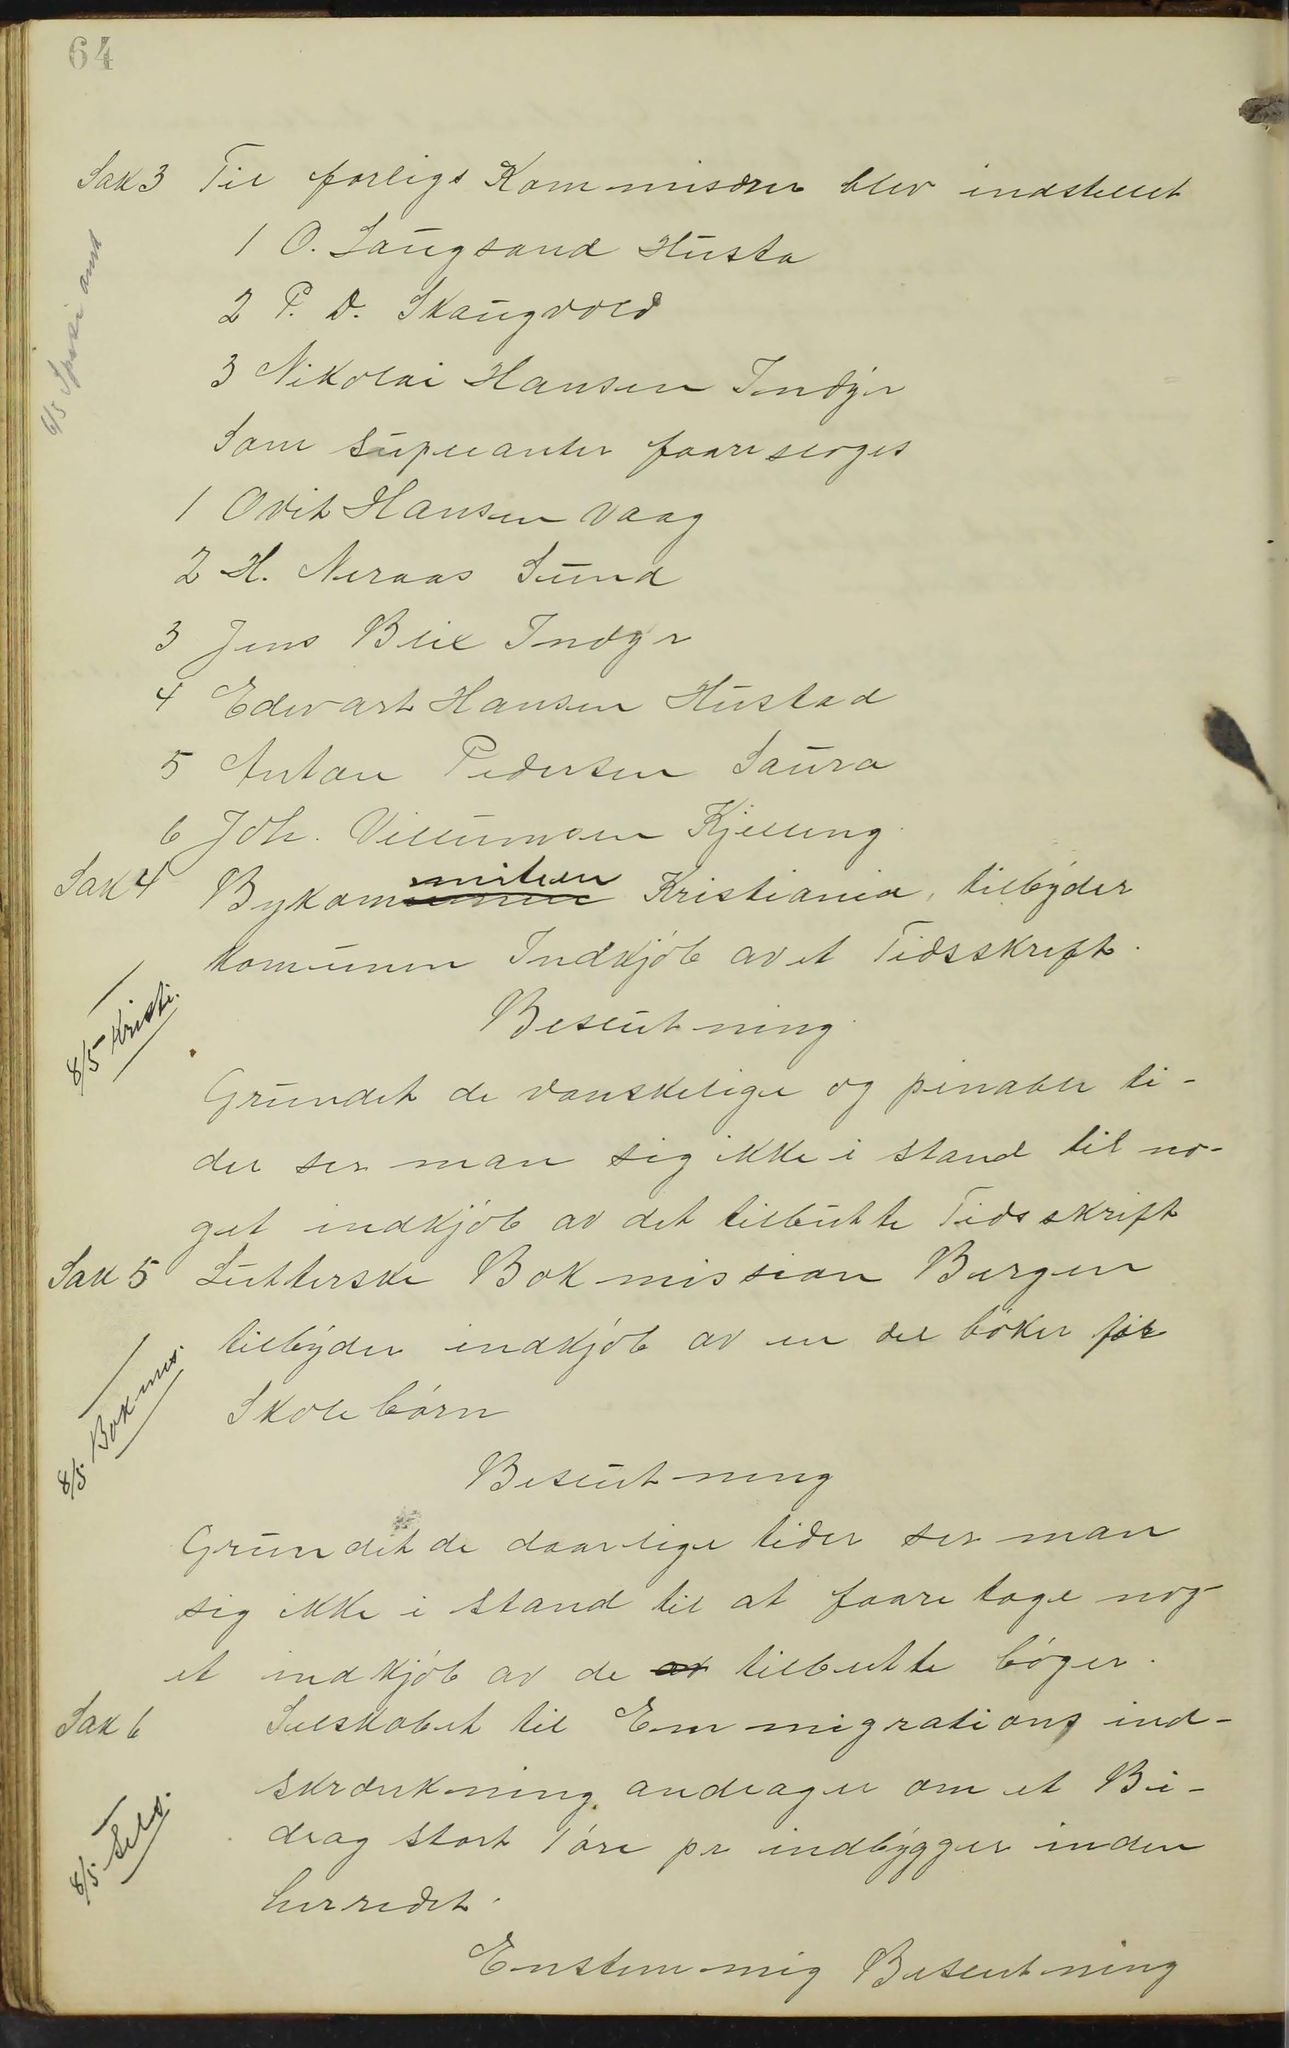 64
Sak 3 Til forligs Kommisærer blev indstillet
1 O. Laugsand Husta
2 P. D. Skaugvold
3 Nikolai Hansen Indyr
Som Supleanter faaresloges
1 Ovit Hansen Vaag
2 H. Neraas Sund
3 Jens Blix Indyr
4 Edvart Hansen Hustad
5 Anton Pedersen Saura
6 Joh. Villumsen Kjelling
Sak 4 Bykommiteen Kristiania, tilbyder
8/5 Kristi.
komunen Indkjøb av et Tidsskrift.
Beslutning
Grundet de vanskelige og pinable ti-
der ser man sig ikke i stand til no-
get indkjøb av det tilbutte Tidsskrift
Sak 5 Lutterske Bokmission Bergen
8/5 Bokmis.
tilbyder indkjøb av en del bøker for
Skolebørn
Beslutning
Grundet de daarlige tider ser man
sig ikke i stand til at faare tage nog-
et indkjøb av de av tilbutte bøger.
Sak 6 Selskabet til Emmigrations ind-
8/5 Sels.
skrænkning andrager om et Bi-
drag stort 1 øre pr indbygger inden
herredet.
Enstemmig Beslutning